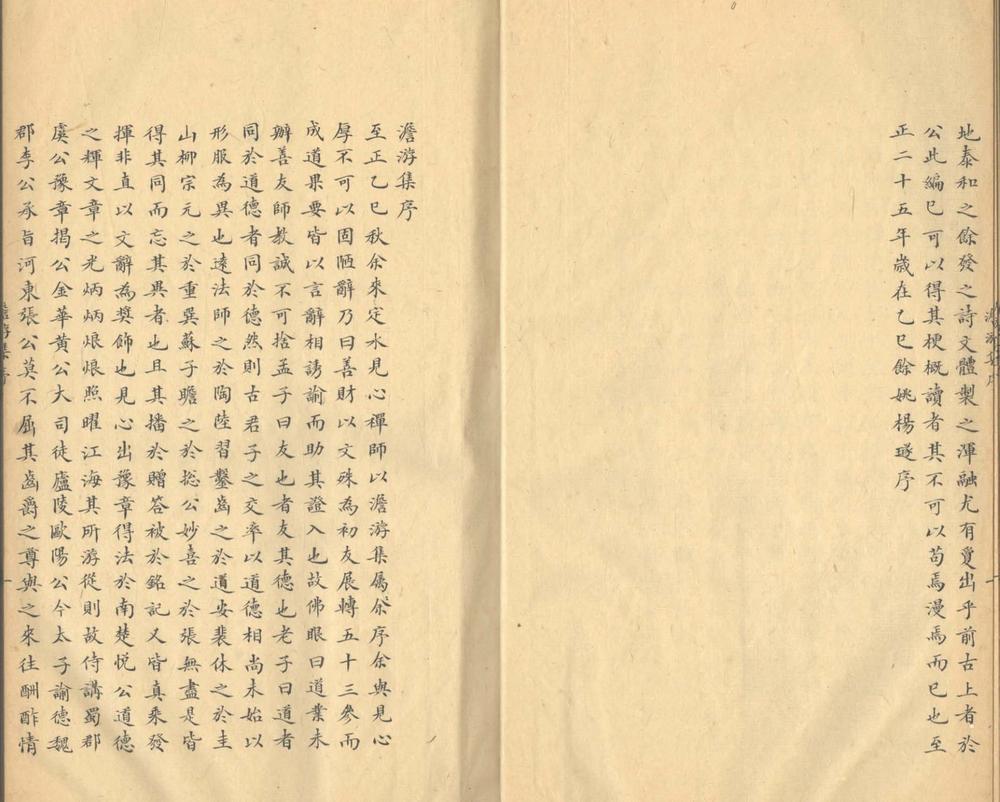 地泰和之餘發之詩文體製之渾融尤有夐出乎前古上者於
公此編已可以得其梗概讀者其不可以苟焉漫焉而已也至
正二十五年歲在乙巳餘姚楊璲序
澹游集序
至正乙巳秋余來定水見心禪師以澹游集属余序余與見心
厚不可以固陋辭乃曰善財以文殊為初友展轉五十三參而
成道果要皆以言辭相誘諭而助其證入也故佛眼曰道業未
辦善友師教誠不可捨孟子曰友也者友其德也老子曰道者
同於道德者同於德然則古君子之交率以道德相尚未始以
形服為異也遠法師之於陶陸習鑿齒之於道安裴休之於圭
山柳宗元之於重巽蘇子瞻之於揔公妙喜之於張無盡是皆
得其同而忘其異者也且其播於贈答被於銘記又皆真乘發
揮非直以文辭為奬飾也見心出豫章得法於南楚悅公道德
之輝文章之光炳炳烺烺照曜江海其所游從則故侍講蜀郡
虞公豫章揭公金華黄公大司徒廬陵歐陽公今太子諭德魏
郡李公承旨河東張公莫不屈其齒爵之尊與之來往酬酢情